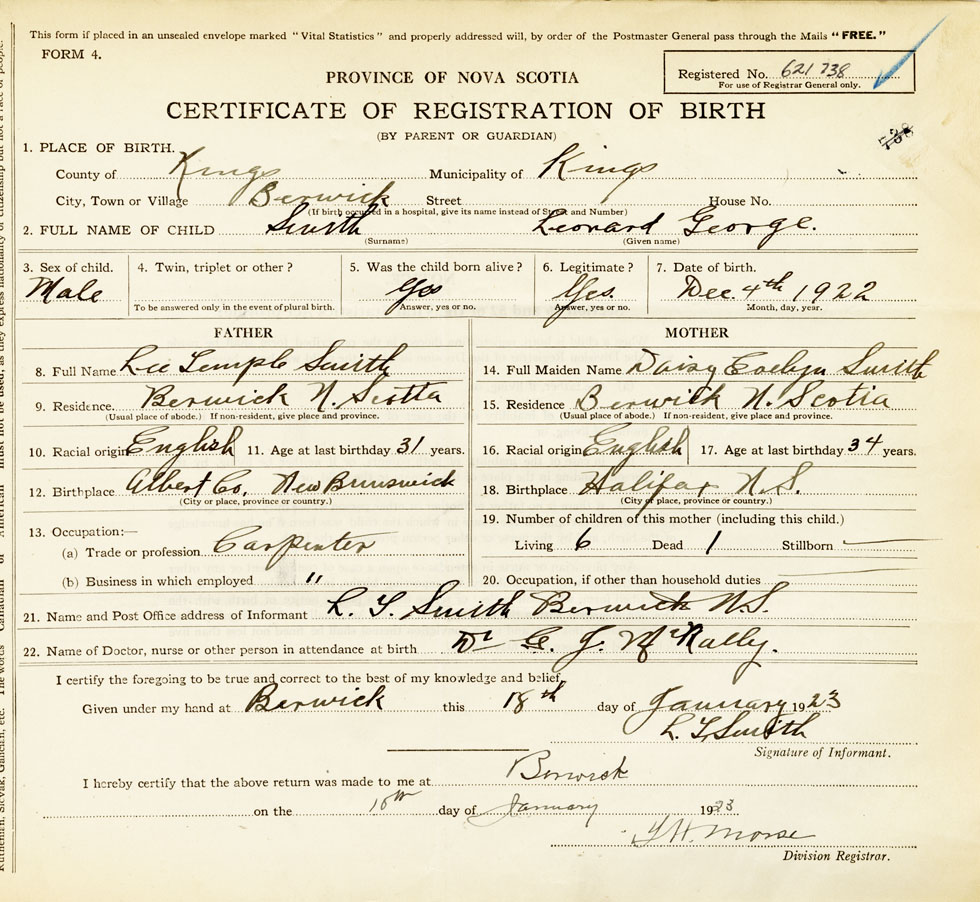 This form if placed in an unsealed envelope marked "Vital Statistics" and properly addressed will, by order of the Postmaster General pass through the Mails "FREE."
FORM 4.
PROVINCE OF NOVA SCOTIA
Registered No. 621 738
For use of Registrar General only.
CERTIFICATE OF REGISTRATION OF BIRTH
(BY PARENT OR GUARDIAN)
738
1. PLACE OF BIRTH.
County of Kings Municipality of Kings
City, Town or Village Berwick Street House No.
(If birth occured in a hospital, give its name instead of Street and Number)
2. FULL NAME OF CHILD Smith Leonard George.
(Surname) (Given name)
3. Sex of child. 4. Twin, triplet or other? 5. Was the child born alive? 6. Legitimate? 7. Date of birth.
Male Yes Yes. Dec. 4th 1922
To be answered only in the event of plural birth. Answer, yes or no. Answer, yes or no. Month, day, year.
FATHER MOTHER
8. Full Name Lee Temple Smith 14. Full Maiden Name Daisy Evelyn Smith
9. Residence. Berwick N. Scotia 15. Residence Berwick N. Scotia
(Usual place of abode.) If non-resident, give place and province. (Usual place of abode.) If non-resident, give place and province.
10. Racial origin English 11. Age at last birthday 31 years. 16. Racial origin English 17. Age at last birthday 34 years.
12. Birthplace Albert Co. New Brunswick 18. Birthplace Halifax N.S.
(City or place, province or country.) (City or place, province or country.)
13. Occupation:— 19. Number of children of this mother (including this child.)
(a) Trade or profession Carpenter Living 6 Dead 1 Stillborn —
(b) Business in which employed " 20. Occupation, if other than household duties
21. Name and Post Office address of Informant L. T. Smith Berwick N.S.
22. Name of Doctor, nurse or other person in attendance at birth Dr J. McNally.
I certify the foregoing to be true and correct to the best of my knowledge and belief,
Given under my hand at Berwick this 18th day of January 1923
L. T. Smith
Signature of Informant.
I hereby certify that the above return was made to me at Berwick
on the day of January 1923
Morse
Division Registrar.